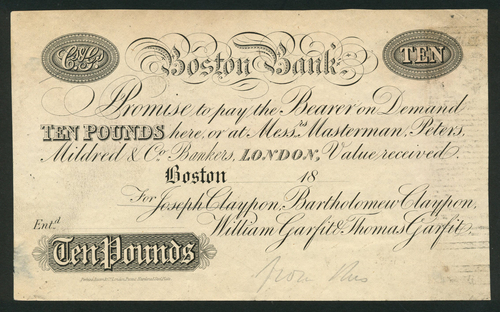 C & Gs
Boston Bank
TEN
Promise to pay the Bearer on Demand
TEN POUNDS here, or at Messrs Masterman, Peters,
Mildred & Co. Bankers, LONDON, Value received.
Boston 18
For Joseph Claypon, Bartholomew Claypon,
William Garfit & Thomas Garfit.
Entd
Ten Pounds
from this